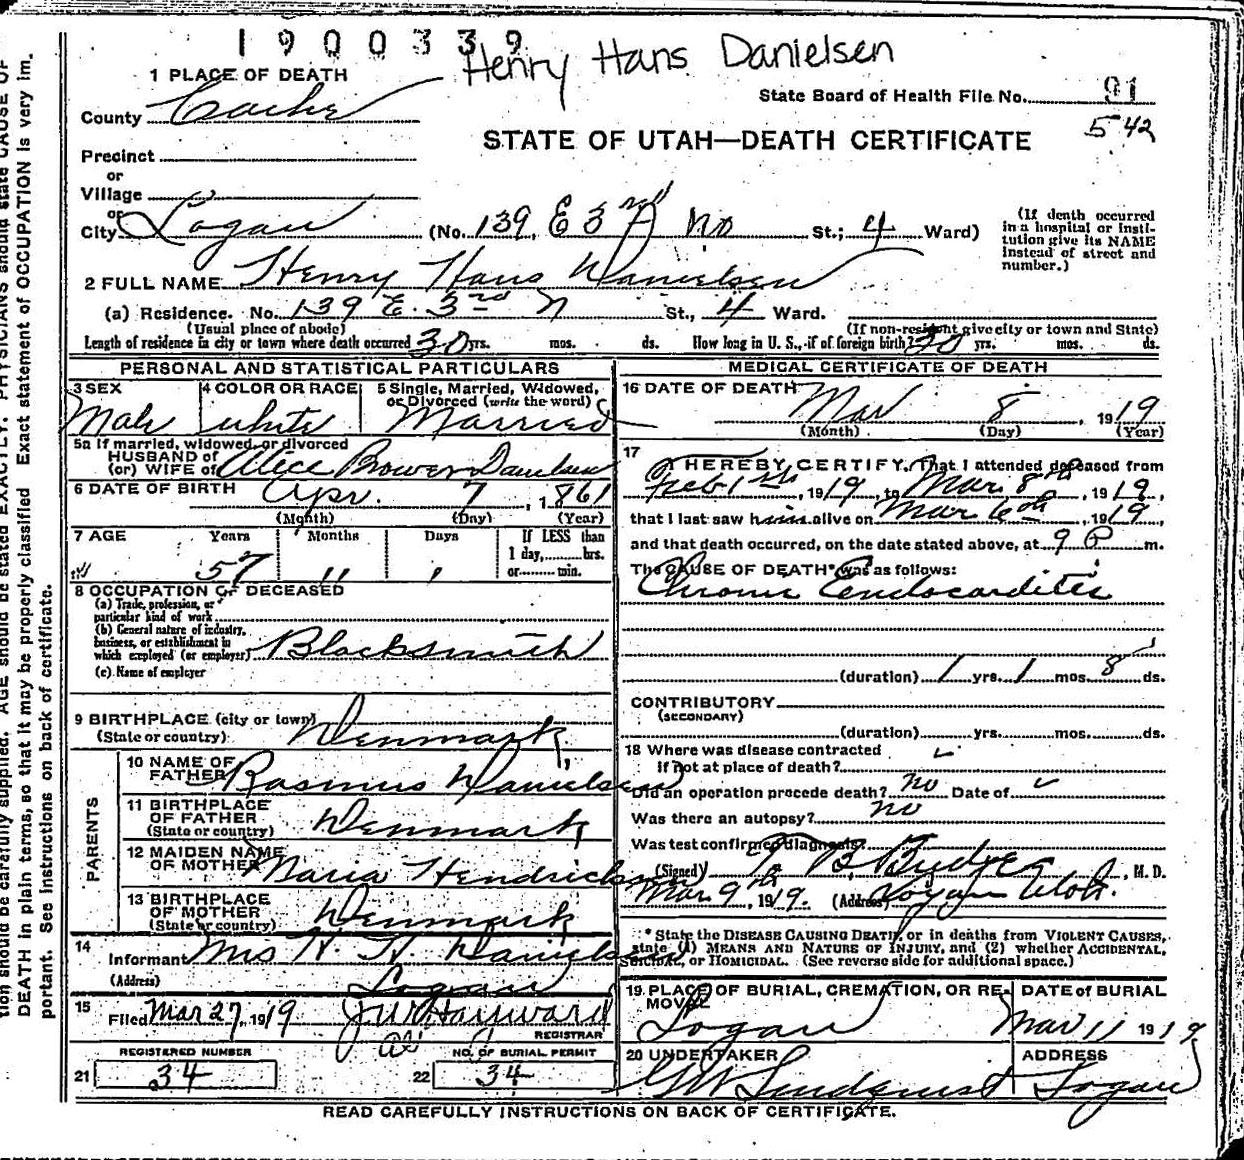 1900339
Henry Hans Danielsen
1 PLACE OF DEATH
State Board of Health File No. 91
County Cache
542
STATE OF UTAH—DEATH CERTIFICATE
Precinct
or
Village
or
City Logan (No. 139, E 3rd No St.; 4 Ward)
(If death occurred in a hospital or institution give its NAME instead of street and number.)
2 FULL NAME Henry Hans Danielsen
(a) Residence. No. 139 E. 3rd N St., 4 Ward.
(Usual place of abode) (If non-resident give city or town and State)
Length of residence in city or town where death occurred 30 yrs. mos. ds. How long in U. S., if of foreign birth? 30 yrs. mos. ds.
PERSONAL AND STATISTICAL PARTICULARS
3 SEX Male
4 COLOR OR RACE white
5 Single, Married, Widowed, or Divorced (write the word) Married
5a If married, widowed, or divorced
HUSBAND of
(or) WIFE of Alice Brower Danielsen
6 DATE OF BIRTH Apr. 7, 1861
(Month) (Day) (Year)
7 AGE Years Months Days
57 11 1
If LESS than 1 day, hrs. or min.
8 OCCUPATION OF DECEASED
(a) Trade, profession, or particular kind of work
(b) General nature of industry, business, or establishment in which employed (or employer) Blacksmith
(c) Name of employer
9 BIRTHPLACE (city or town)
(State or country) Denmark
PARENTS
10 NAME OF FATHER Rasmus Danielsen
11 BIRTHPLACE OF FATHER (State or country) Denmark
12 MAIDEN NAME OF MOTHER Maria Hendricksen
13 BIRTHPLACE OF MOTHER (State or country) Denmark
14 Informant Mrs H. H. Danielsen
(Address) Logan
15 Filed Mar 27, 1919 J W Hayward
REGISTRAR
21 REGISTERED NUMBER 34
22 NO. OF BURIAL PERMIT 34
MEDICAL CERTIFICATE OF DEATH
16 DATE OF DEATH Mar 8, 1919
(Month) (Day) (Year)
17 I HEREBY CERTIFY, That I attended deceased from
Feb 1st, 1919, to Mar. 8th, 1919,
that I last saw him alive on Mar 6th, 1919,
and that death occurred, on the date stated above, at 9 P m.
The CAUSE OF DEATH* was as follows:
Chronic Endocarditis
(duration) 1 yrs. 1 mos 8 ds.
CONTRIBUTORY
(SECONDARY)
(duration) yrs. mos. ds.
18 Where was disease contracted
if not at place of death?
Did an operation precede death? no Date of
Was there an autopsy? no
Was test confirmed diagnosis?
(Signed) B. Budge, M. D.
Mar 9th, 1919. (Address) Logan Utah.
* State the DISEASE CAUSING DEATH, or in deaths from VIOLENT CAUSES, state (1) MEANS AND NATURE OF INJURY, and (2) whether ACCIDENTAL, SUICIDAL, or HOMICIDAL. (See reverse side for additional space.)
19 PLACE OF BURIAL, CREMATION, OR REMOVAL Logan
DATE of BURIAL Mar 11 1919
20 UNDERTAKER Lindquist
ADDRESS Logan
READ CAREFULLY INSTRUCTIONS ON BACK OF CERTIFICATE.
tion should be carefully supplied. AGE should be stated EXACTLY. PHYSICIANS should state CAUSE OF
DEATH in plain terms, so that it may be properly classified Exact statement of OCCUPATION is very im.
portant. See instructions on back of certificate.